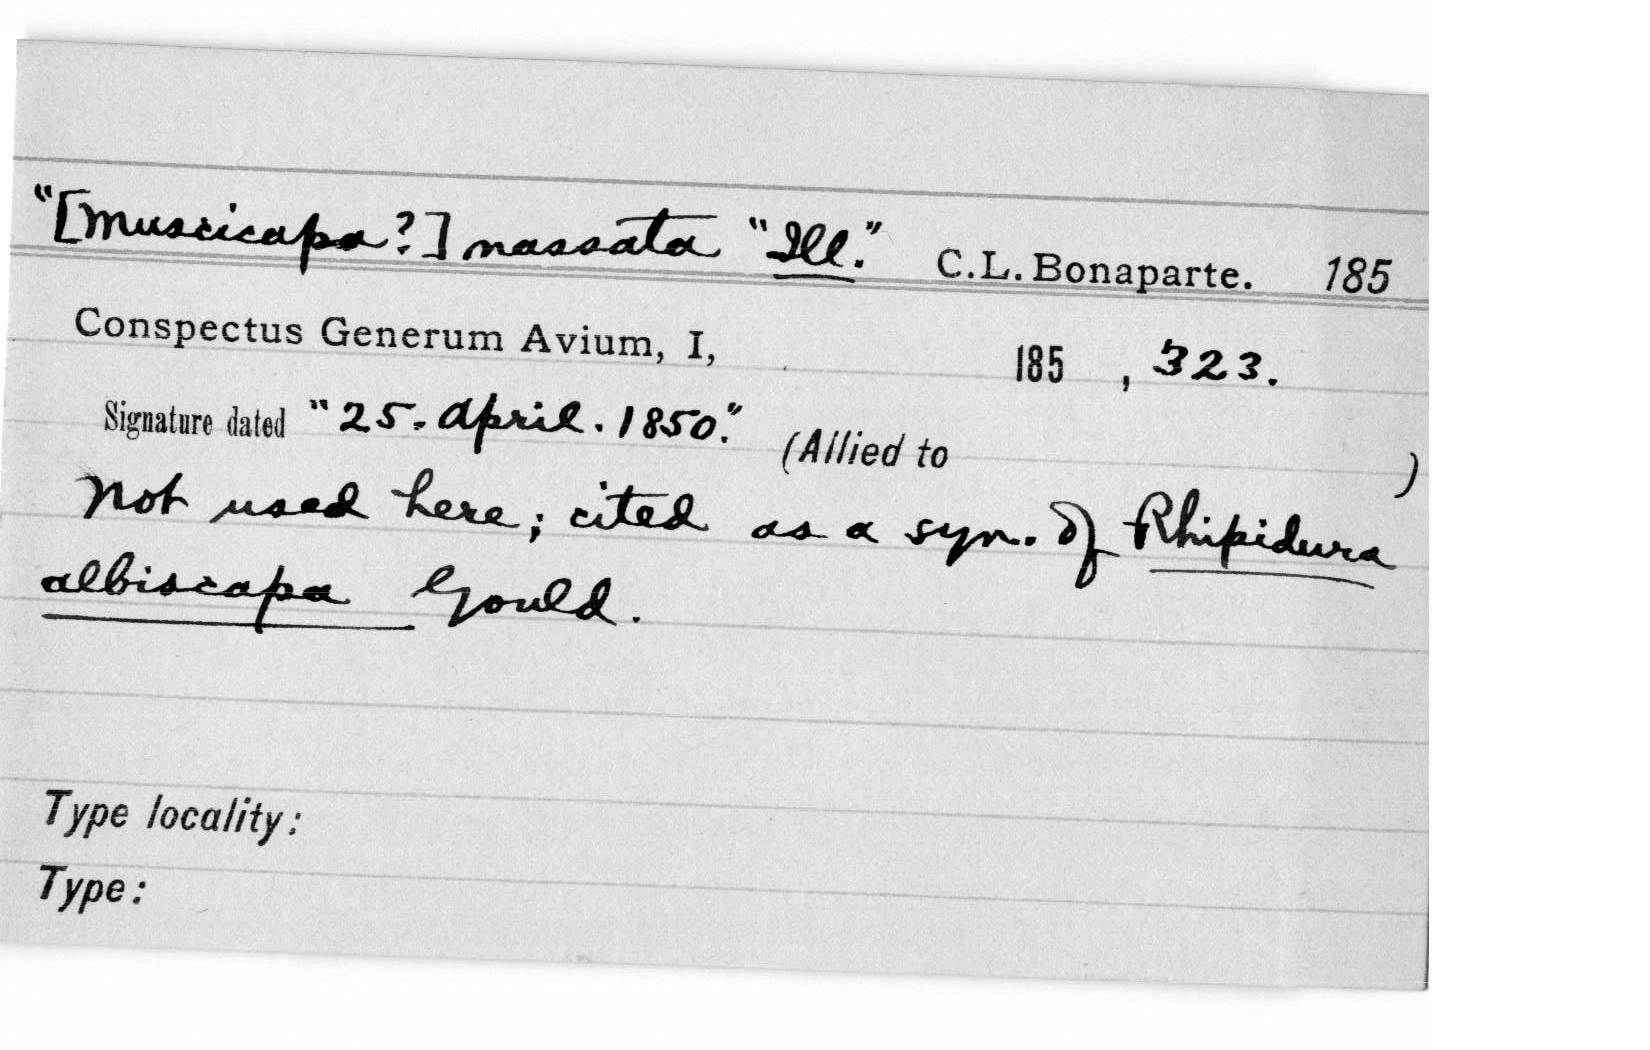 "[Muscicapa?] nassata "Ill." C.L. Bonaparte. 185
Conspectus Generum Avium, I, 185 , 323.
Signature dated "25. April. 1850." (Allied to )
Not used here; cited as a syn. of Rhipidura
albiscapa Gould.
Type locality:
Type: